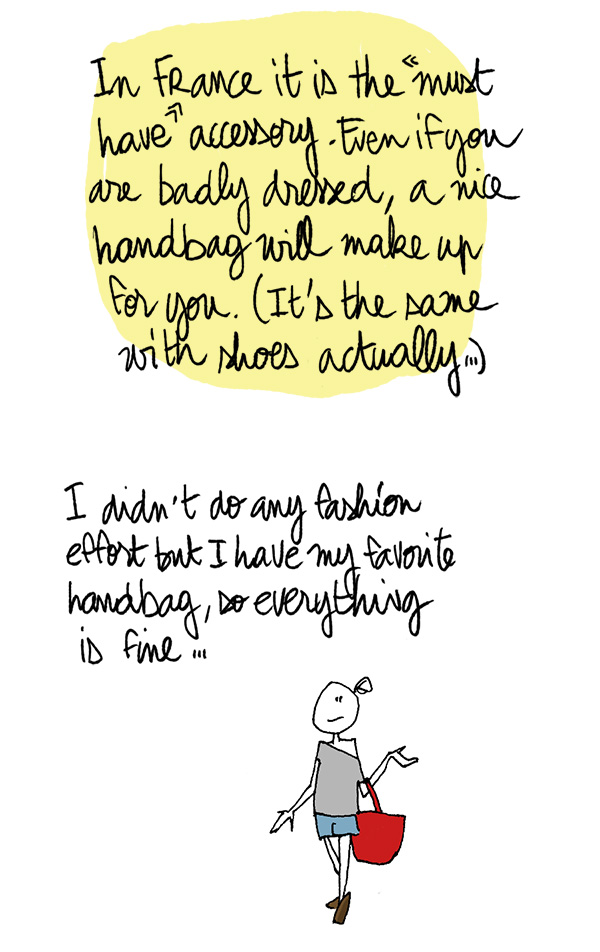 In FRance it is the «must
have» accessory. Even if you
are badly dressed, a nice
handbag will make up
for you. (It's the same
with shoes actually...)
I didn't do any fashion
effort but I have my favorite
handbag, so everything
is fine...